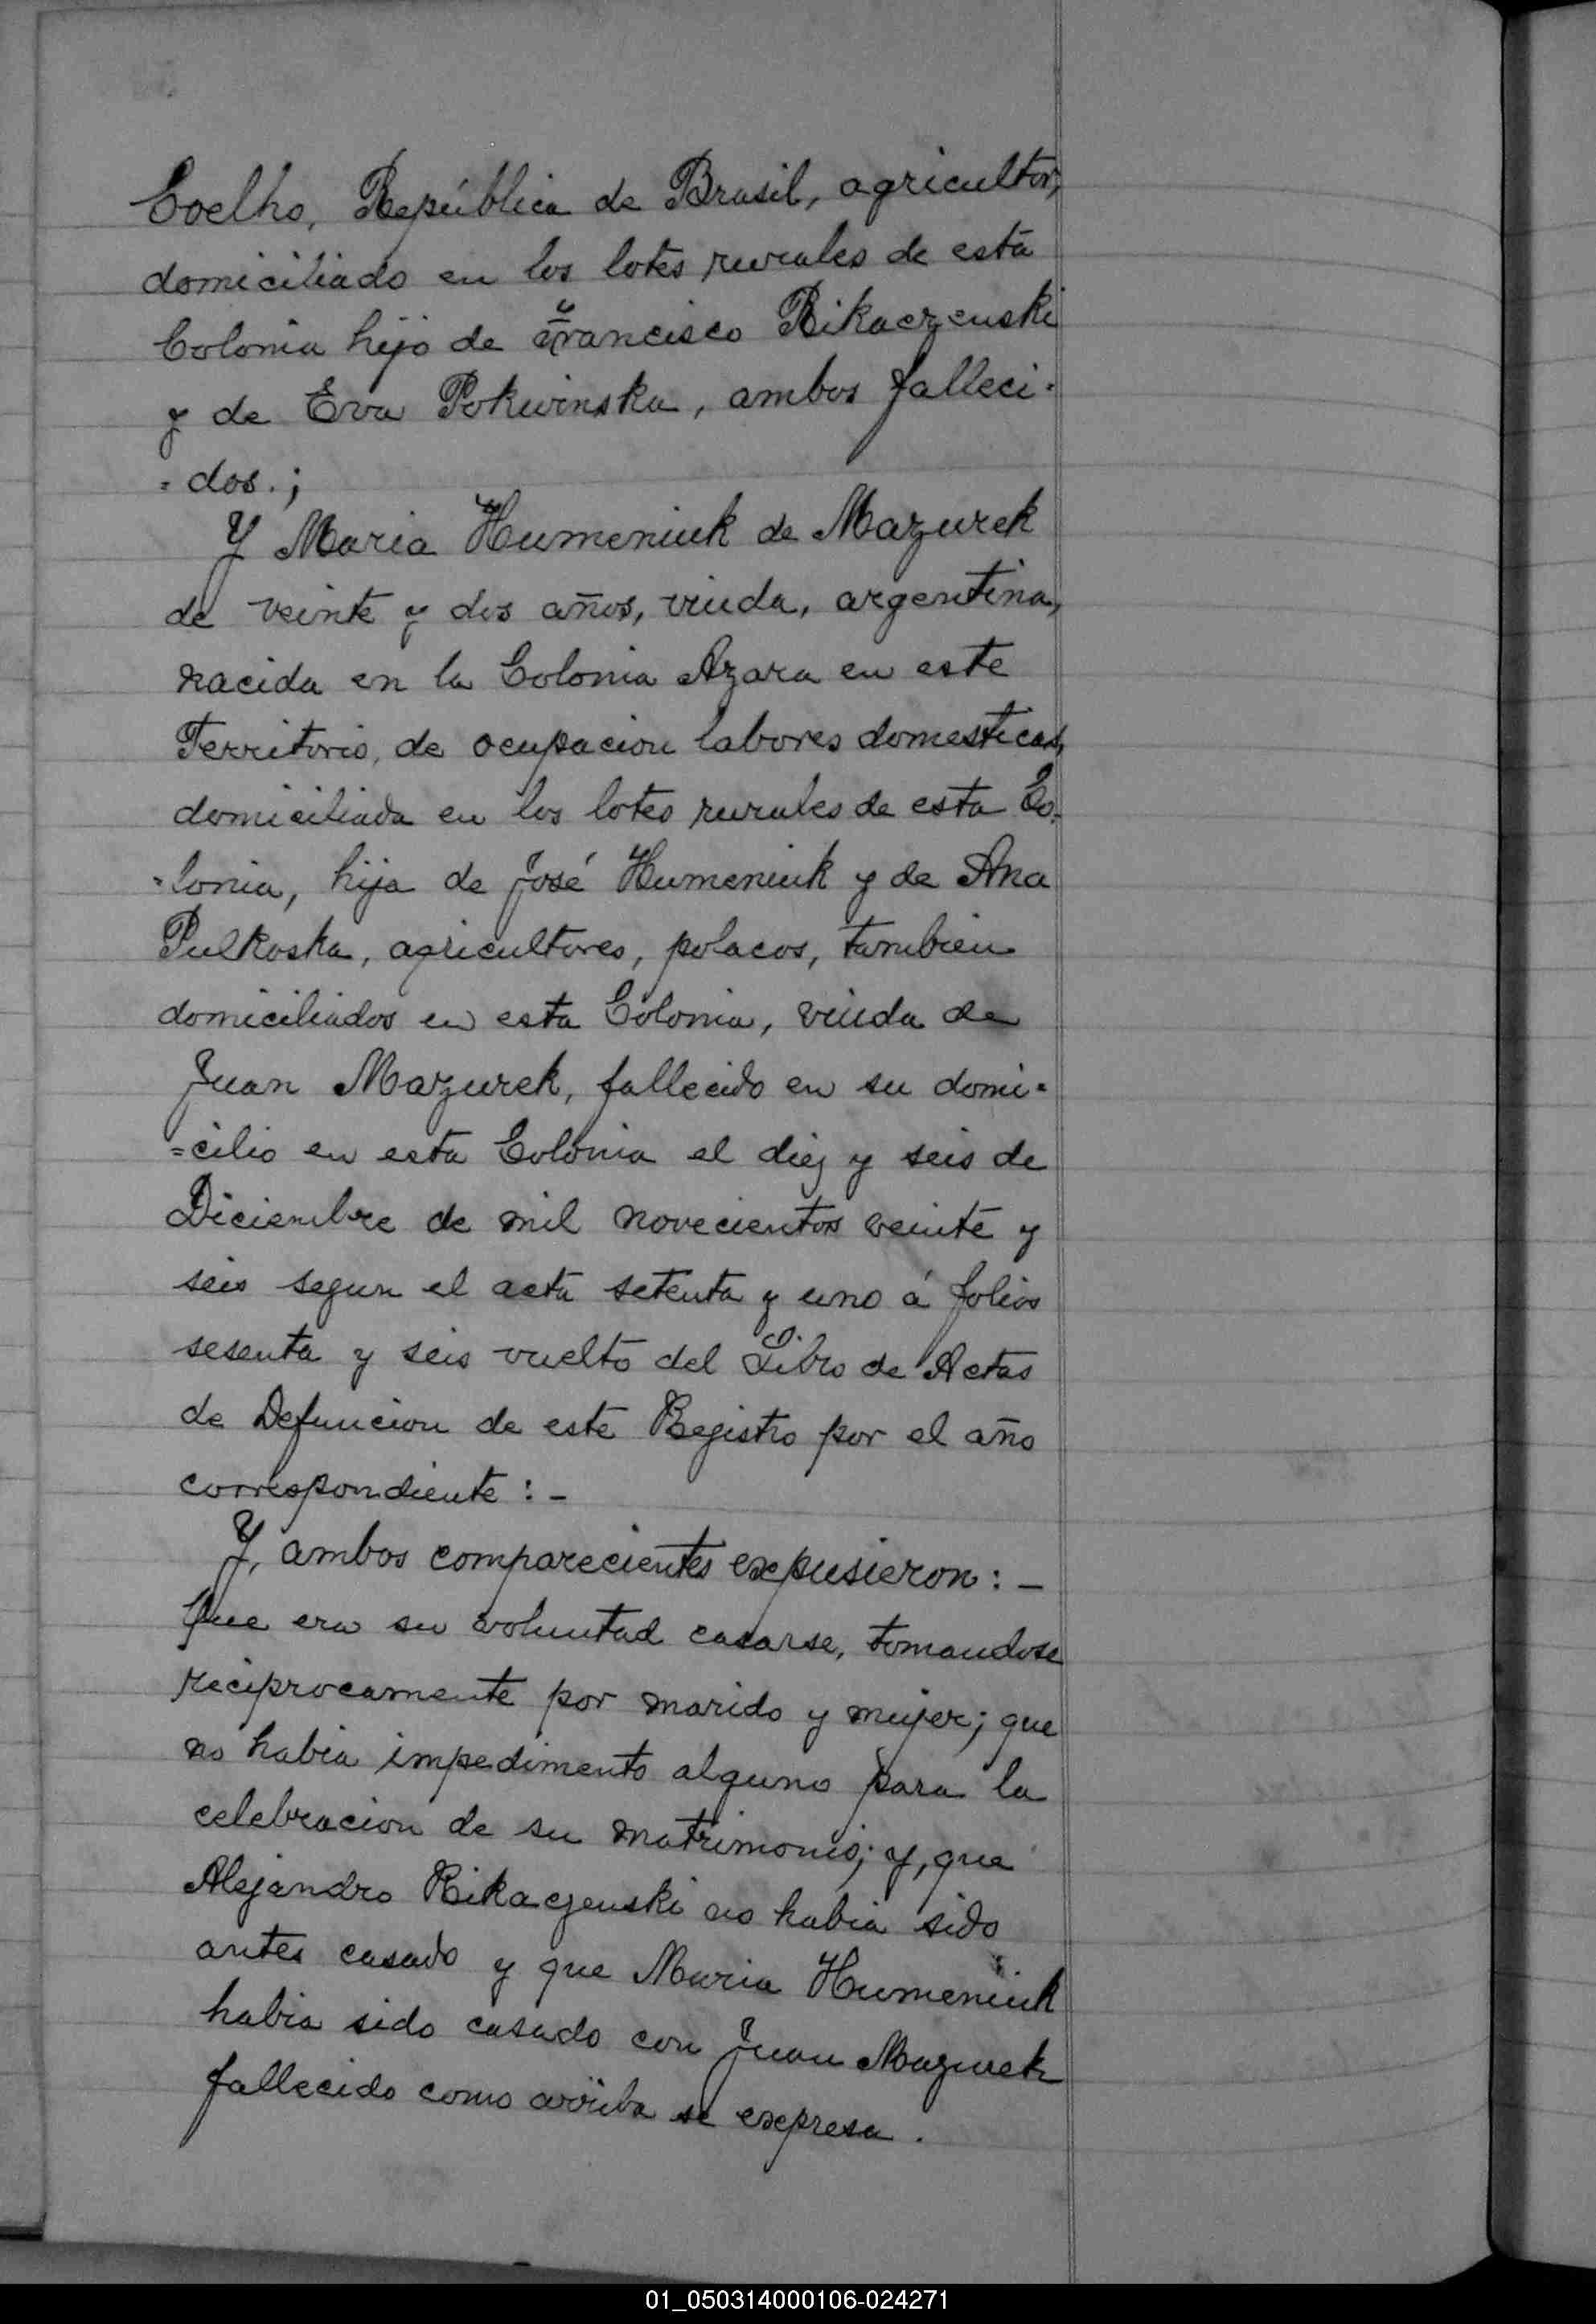 Coelho, República de Brasil, agricultor,
domiciliado en los lotes rurales de esta
Colonia hijo de Francisco Rikaczenski
y de Eva Pokwinska, ambos falleci-
= dos.;
Y Maria Humeniuk de Mazurek
de veinte y dos años, viuda, argentina,
nacida en la Colonia Azara en este
Territorio, de ocupacion labores domesticas,
domiciliada en los lotes rurales de esta Co-
=lonia, hija de José Humeniuk y de Ana
Pulkoska, agricultores, polacos, tambien
domiciliados en esta Colonia, viuda de
Juan Mazurek, fallecido en su domi=
=cilio en esta Colonia el diez y seis de
Diciembre de mil novecientos veinte y
seis segun el acta setenta y uno á folios
sesenta y seis vuelto del Libro de Actas
de Defuncion de este Registro por el año
correspondiente : -
Y, ambos comparecientes expusieron : -
Que era su voluntad casarse, tomandose
reciprocamente por marido y mujer; que
no habia impedimento alguno para la
celebracion de su matrimonio; y, que
Alejandro Rikaczenski no habia sido
antes casado y que Maria Humeniuk
habia sido casado con Juan Mazurek
fallecido como arriba se expresa.
01_050314000106-024271